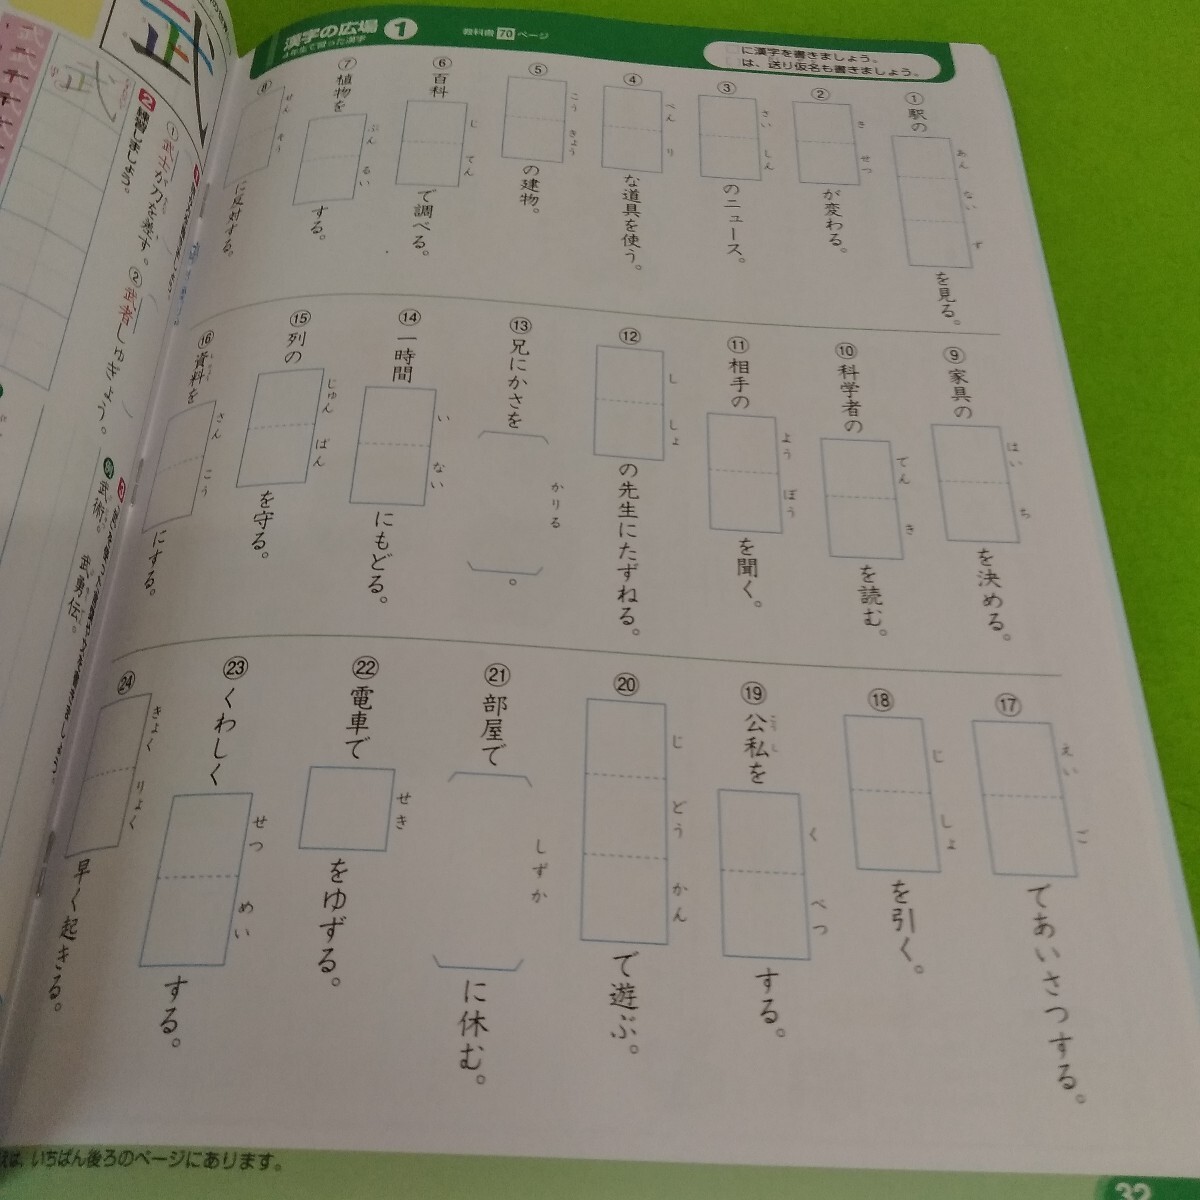 漢字の広場 1
4年生で習った漢字
教科書 70 ページ
□に漢字を書きましょう。
は、送り仮名も書きましょう。
① 駅の あんないず を見る。
② きせつ が変わる。
③ さいしん のニュース。
④ べんり な道具を使う。
⑤ こうきょう の建物。
⑥ 百科 じてん で調べる。
⑦ 植物を ぶんるい する。
⑧ せんそう に反対する。
⑨ 家具の はいち を決める。
⑩ 科学者の でんき を読む。
⑪ 相手の ようぼう を聞く。
⑫ ししょ の先生にたずねる。
⑬ 兄にかさを かりる 。
⑭ 一時間 いない にもどる。
⑮ 列の じゅんばん を守る。
⑯ 資料を さんこう にする。
⑰ えいご であいさつする。
⑱ じしょ を引く。
⑲ 公私を こうし くべつ する。
⑳ じどうかん で遊ぶ。
㉑ 部屋で しずか に休む。
㉒ 電車で せき をゆずる。
㉓ くわしく せつめい する。
㉔ きょくりょく 早く起きる。
武
2 練習しましょう。
① 武士が刀を差す。
② 武者しゅぎょう。
例 武術。 武勇伝。
は、いちばん後ろのページにあります。
32